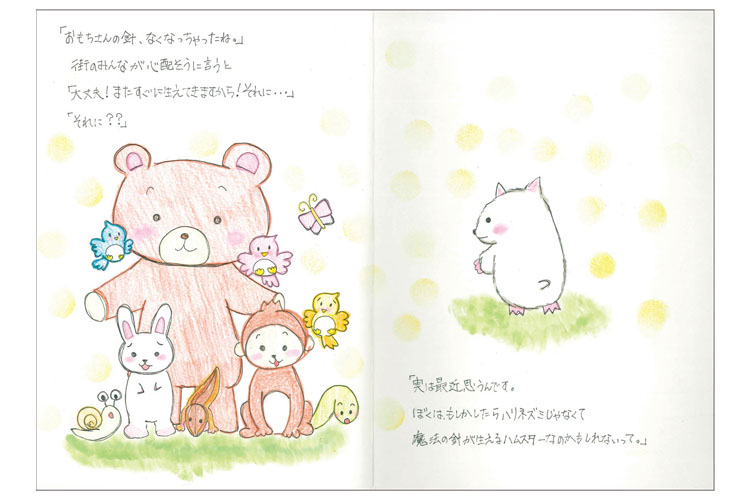 「おもちさんの針、なくなっちゃったね。」
街のみんなが心配そうに言うと
「大丈夫！またすぐに生えてきますから！それに・・・」
「それに？？」
「実は最近思うんです。
ぼくは、もしかしたらハリネズミじゃなくて
魔法の針が生えるハムスターなのかもしれないって。」